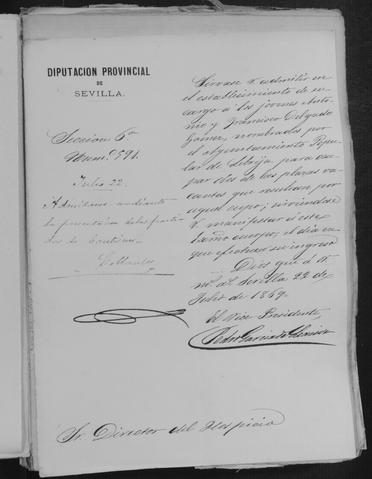 DIPUTACION PROVINCIAL
DE
SEVILLA.
Seccion 6ª
Num. 591.
Julio 22.
Admitanse mediante
la presentacion de las partidas
de bautismo
Sirvase V. admitir en
el establecimiento de su
cargo á los jovenes Anto-
nio y Francisco Delgado
Gomez, nombrados por
el Ayuntamiento Popu-
lar de Lebrija para ocu-
par dos de las plazas va-
cantes que resultan por
aquel cupo; sirviendose
V. manifestar á este
el dia en
que efectuen su ingreso
Dios gue á V.
ms. as. Sevilla 22 de
Julio de 1869.
El Vice Presidente,
Pedro
Sr. Director del Hospicio